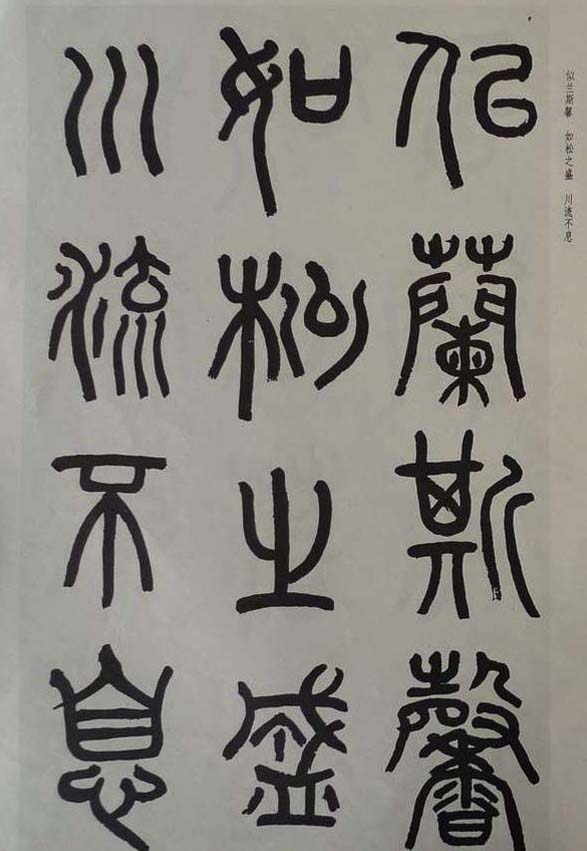 似兰斯馨 如松之盛 川流不息
似蘭斯馨
如松之盛
川流不息